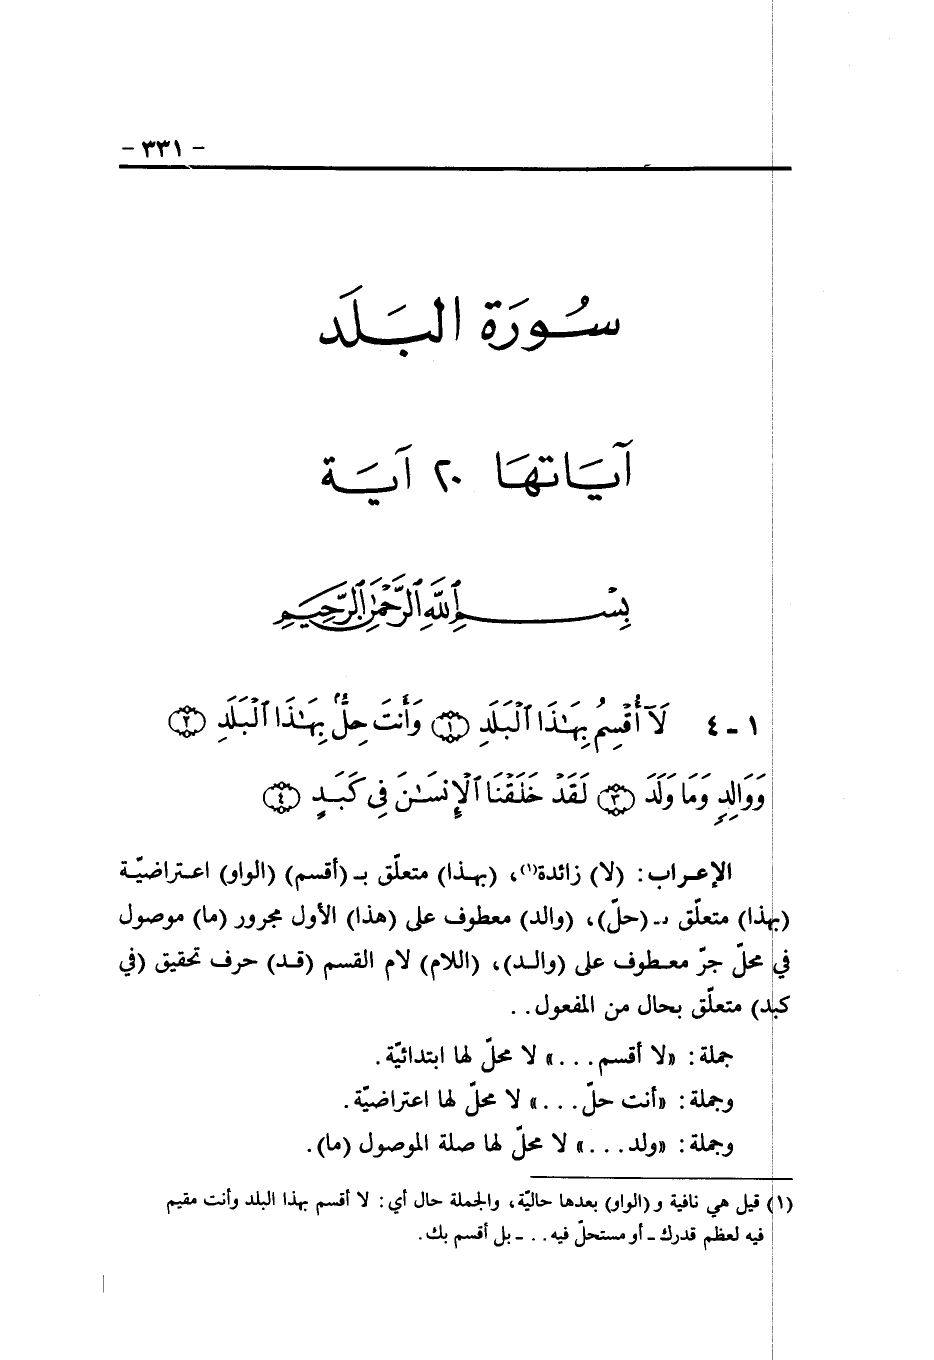 - ٣٣١ -
سُورَة البَلَد
آيَاتهَا ٢٠ آيَة
بِسْمِ ٱللَّهِ ٱلرَّحْمَٰنِ ٱلرَّحِيمِ
١ - ٤ لَآ أُقْسِمُ بِهَٰذَا ٱلْبَلَدِ ۝١ وَأَنتَ حِلٌّۢ بِهَٰذَا ٱلْبَلَدِ ۝٢
وَوَالِدٍ وَمَا وَلَدَ ۝٣ لَقَدْ خَلَقْنَا ٱلْإِنسَٰنَ فِى كَبَدٍ ۝٤
الإعراب: (لا) زائدة(١)، (بهذا) متعلّق بـ (أقسم) (الواو) اعتراضيّة
(بهذا) متعلّق بـ (حلّ)، (والد) معطوف على (هذا) الأول مجرور (ما) موصول
في محلّ جرّ معطوف على (والد)، (اللام) لام القسم (قد) حرف تحقيق (في
كبد) متعلّق بحال من المفعول. .
جملة: «لا أقسم. . .» لا محلّ لها ابتدائيّة.
وجملة: «أنت حلّ. . .» لا محلّ لها اعتراضيّة.
وجملة: «ولد. . .» لا محلّ لها صلة الموصول (ما).
(١) قيل هي نافية و (الواو) بعدها حاليّة، والجملة حال أي: لا أقسم بهذا البلد وأنت مقيم
فيه لعظم قدرك ـ أو مستحلّ فيه. . ـ بل أقسم بك.